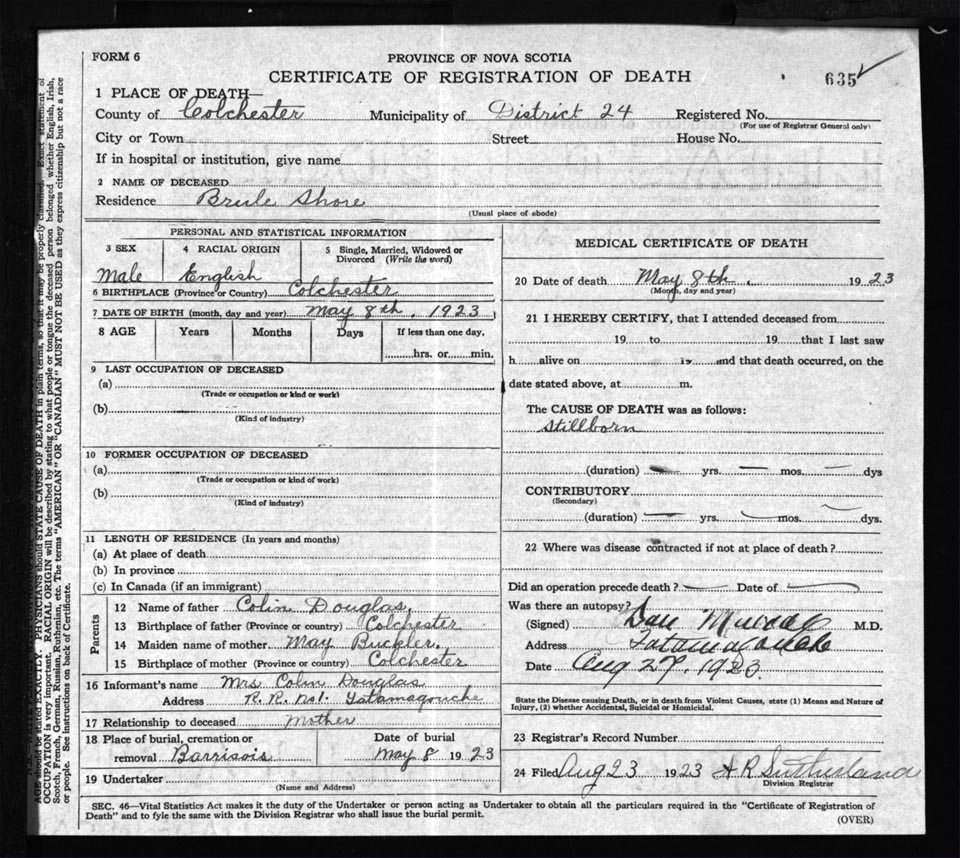 FORM 6
PROVINCE OF NOVA SCOTIA
CERTIFICATE OF REGISTRATION OF DEATH
635
1 PLACE OF DEATH—
County of Colchester Municipality of District 24 Registered No.
(For use of Registrar General only)
City or Town Street House No.
If in hospital or institution, give name
2 NAME OF DECEASED
Residence Brule Shore
(Usual place of abode)
PERSONAL AND STATISTICAL INFORMATION
3 SEX 4 RACIAL ORIGIN 5 Single, Married, Widowed or Divorced (Write the word)
Male English
6 BIRTHPLACE (Province or Country) Colchester
7 DATE OF BIRTH (month, day and year) May 8th, 1923
8 AGE Years Months Days If less than one day,
hrs. or min.
9 LAST OCCUPATION OF DECEASED
(a)
(Trade or occupation or kind or work)
(b)
(Kind of industry)
10 FORMER OCCUPATION OF DECEASED
(a)
(Trade or occupation or kind of work)
(b)
(Kind of industry)
11 LENGTH OF RESIDENCE (In years and months)
(a) At place of death
(b) In province
(c) In Canada (if an immigrant)
Parents
12 Name of father Colin Douglas,
13 Birthplace of father (Province or country) Colchester
14 Maiden name of mother May Buckler,
15 Birthplace of mother (Province or country) Colchester
16 Informant's name Mrs Colin Douglas
Address R. R. No1. Tatamagouche
17 Relationship to deceased mother
18 Place of burial, cremation or Date of burial
removal May 8 1923
19 Undertaker
(Name and Address)
MEDICAL CERTIFICATE OF DEATH
20 Date of death May 8th, 1923
(Month, day and year)
21 I HEREBY CERTIFY, that I attended deceased from
19 to 19 that I last saw
h alive on 19 and that death occurred, on the
date stated above, at m.
The CAUSE OF DEATH was as follows:
Stillborn
(duration) yrs. mos. dys
CONTRIBUTORY
(Secondary)
(duration) yrs. mos. dys.
22 Where was disease contracted if not at place of death?
Did an operation precede death? Date of
Was there an autopsy?
(Signed) Dan Murray M.D.
Address Tatamagouche
Date Aug 27, 1923
State the Disease causing Death, or in death from Violent Causes, state (1) Means and Nature of
Injury, (2) whether Accidental, Suicidal or Homicidal.
23 Registrar's Record Number
24 Filed Aug 23 1923 A R Sutherland
Division Registrar
SEC. 46—Vital Statistics Act makes it the duty of the Undertaker or person acting as Undertaker to obtain all the particulars required in the "Certificate of Registration of
Death" and to fyle the same with the Division Registrar who shall issue the burial permit.
(OVER)
AGE should be stated EXACTLY. PHYSICIANS should STATE CAUSE OF DEATH in plain terms, so that it may be properly classified. Exact statement of
OCCUPATION is very important. RACIAL ORIGIN will be described by stating to what people or tongue the deceased person belonged whether English, Irish,
Scotch, French, German, Russian, Ruthenian, etc. The terms "AMERICAN" OR "CANADIAN" MUST NOT BE USED as they express citizenship but not a race
or people. See instructions on back of Certificate.